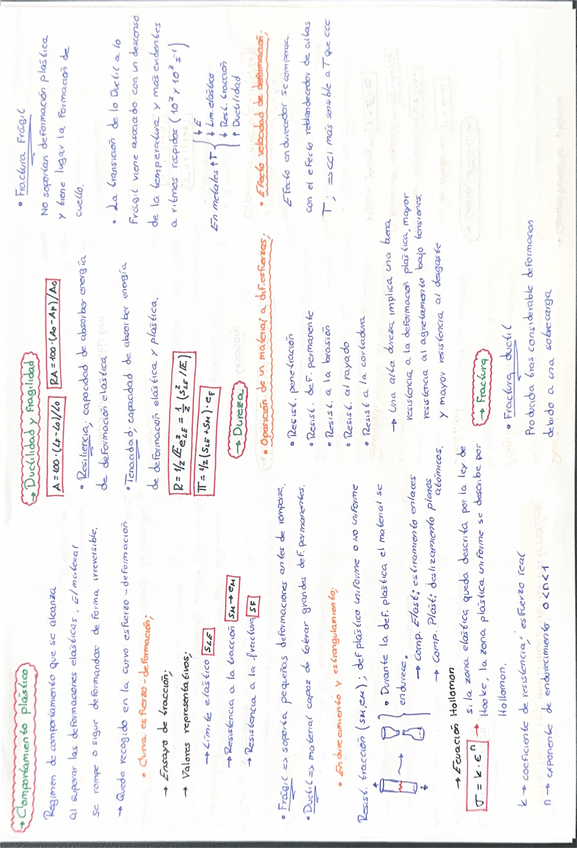 → Comportamiento plástico
Regimen de comportamiento que se alcanza
al superar las deformaciones elásticas. El material
se rompe o sigue deformandose de forma irreversible.
→ Queda recogido en la curva esfuerzo-deformación
• Curva esfuerzo-deformación;
→ Ensayo de tracción;
→ Valores representativos;
→ Límite elástico SLE
→ Resistencia a la tracción SM → eM
→ Resistencia a la fractura SF
• Frágil => soporta pequeñas deformaciones antes de romperse.
• Ductil => material capaz de tolerar grandes def. permanentes.
• Endurecimiento y estrangulamiento;
Resist. tracción (SM, eM); def plástico uniforme o no uniforme
• Durante la def. plástica el material se
endurece.
→ Comp. Elast; estiramiento enlaces
→ Comp. Plast; deslizamiento planos
atómicos.
→ Ecuación Hollomon
σ = k · ε^n → Si la zona elástica queda descrita por la ley de
Hooke, la zona plástica uniforme se describe por
Hollomon.
k → coeficiente de resistencia; esfuerzo real
n → exponente de endurecimiento 0<n<1
→ Ductilidad y fragilidad
A = 100 · (LF - L0)/L0 RA = 100 · (A0 - AF)/A0
• Resiliencia; capacidad de absorber energía
de deformación elástica
• Tenacidad; capacidad de absorber energía
de deformación elástica y plástica.
R = 1/2 E e²LE = 1/2 (S²LE / E)
Π = 1/2 (SLE + SM) · eF
→ Dureza
• Oposición de un material a dif. esfuerzos;
• Resist. penetración
• Resist. def. permanente
• Resist. a la abrasión
• Resist. al rayado
• Resist a la cortadura
→ Una alta dureza implica una buena
resistencia a la deformación plástica, mayor
resistencia al agrietamiento bajo tensiones,
y mayor resistencia al desgaste
→ Fractura
• Fractura ductil
Producida tras considerable deformación
debido a una sobrecarga
• Fractura Frágil
No soportan deformación plástica
y tiene lugar la formación de
cuello.
• La transición de lo Ductil a lo
Frágil viene asociado con un descenso
de la temperatura y más evidentes
a ritmos rápidos
En metales ↑T
↓ E
↓ Lím. elástico
↓ Resist. tracción
↑ Ductilidad
• Efecto velocidad de deformación;
Efecto endurecedor se compensa
con el efecto reblandecedor de altas
T; => CCI más sensible a T que CCC